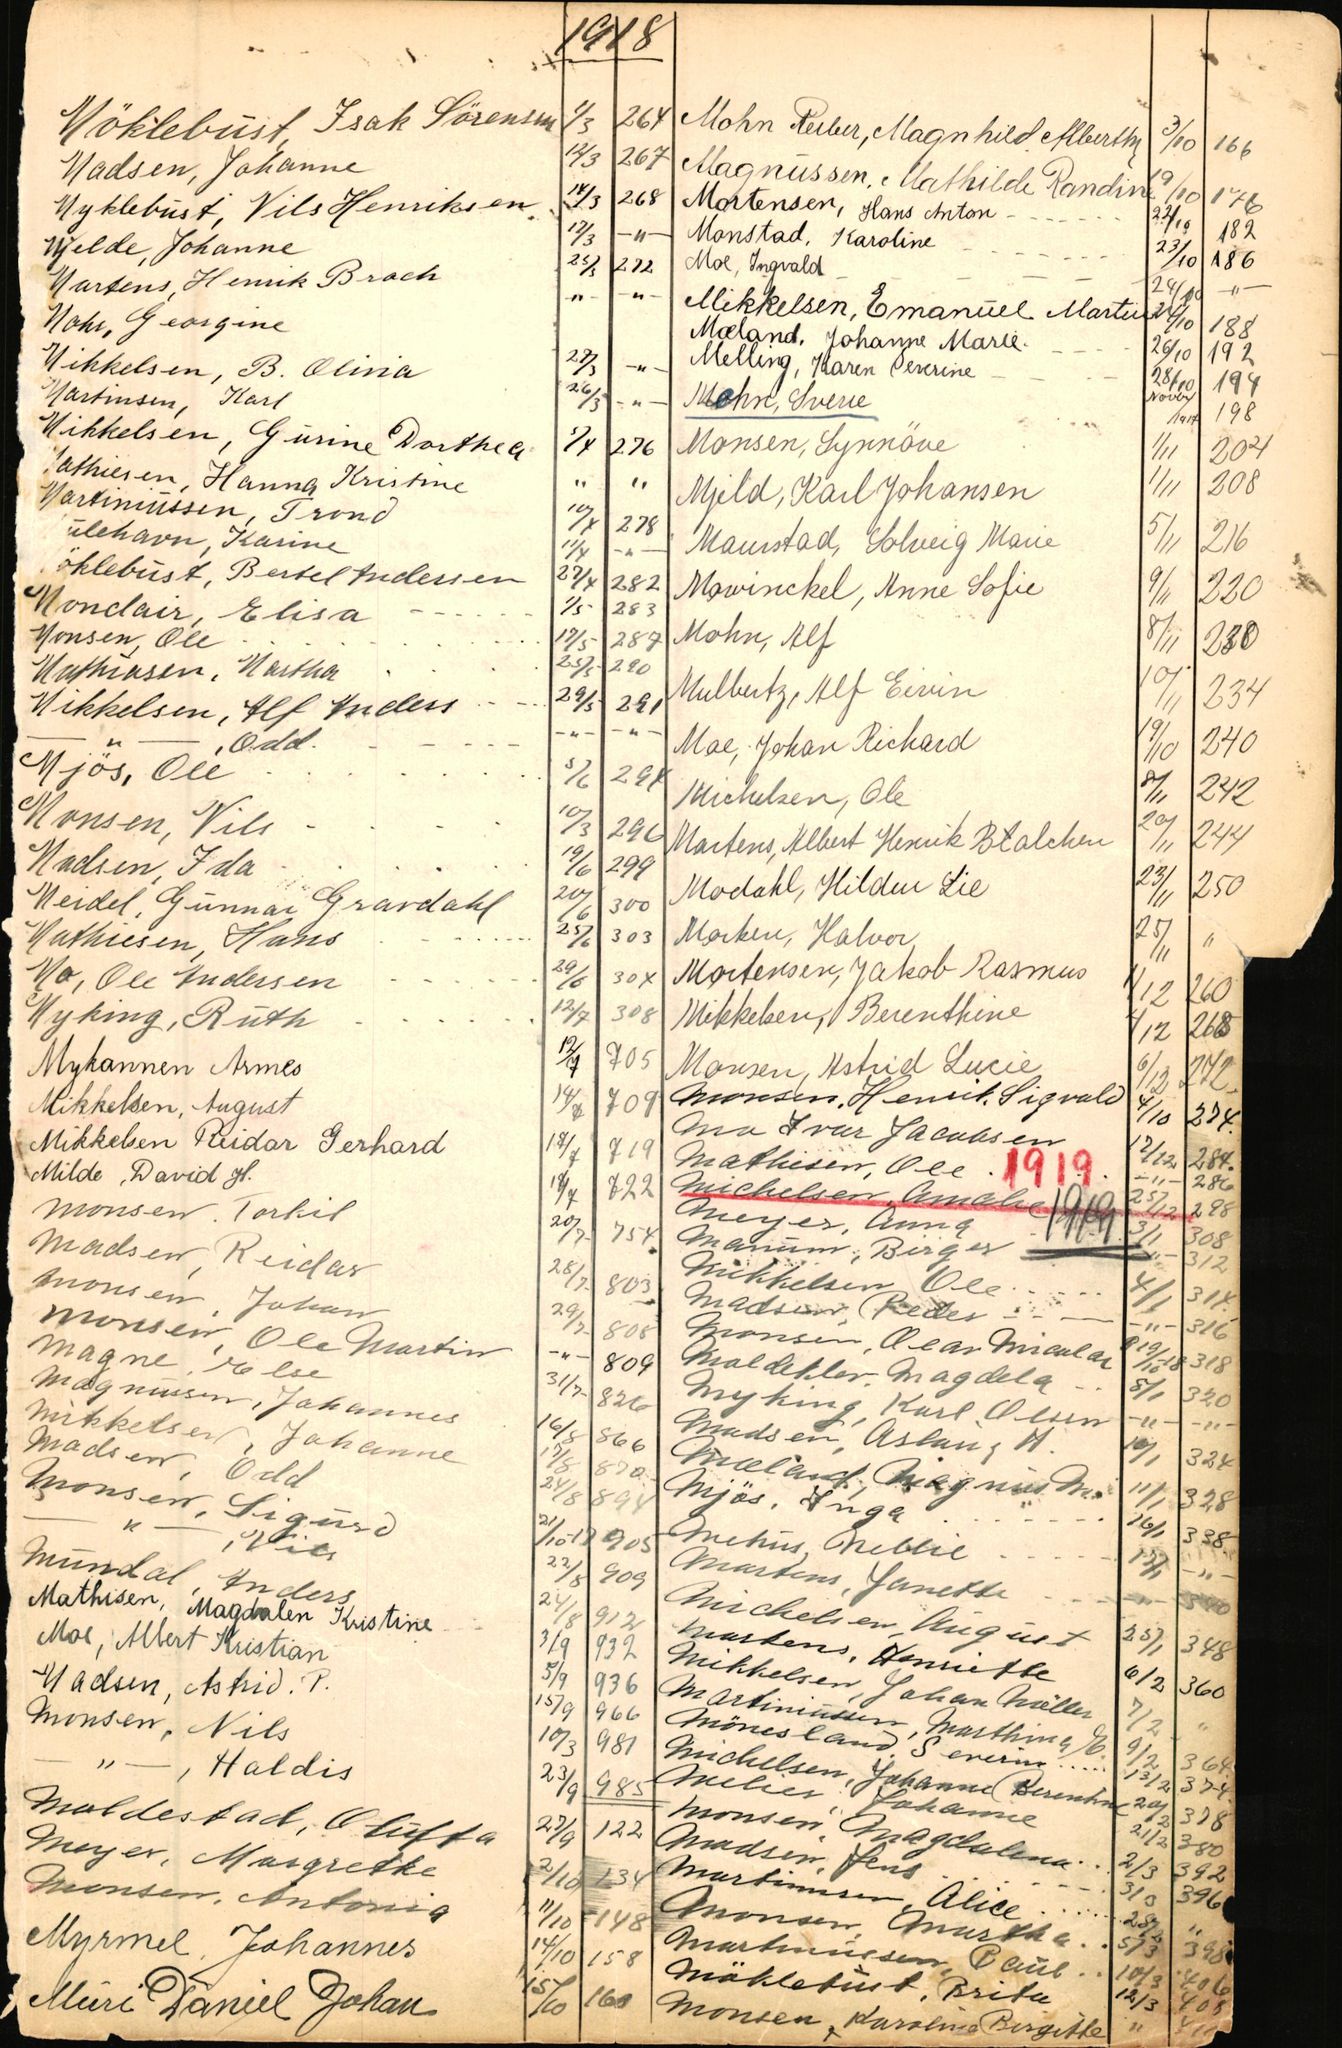 1918
Möklebust, Isak Sörensen 1/3 264
Madsen, Johanne 12/3 267
Myklebust, Nils Henriksen 14/3 268
Mjelde, Johanne 17/3 -"-
Martens, Henrik Broch 25/3 272
Mohr, Georgine " -"-
Mikkelsen, B. Olina 27/3 -"-
Martinsen, Karl 26/3 -"-
Mikkelsen, Gurine Dorthea 5/4 276
Mathiesen, Hanna Kristine " "
Martinussen, Trond 10/4 278
ulehavn, Karine 11/4 -"-
öklebust, Bertel Andersen 27/4 282
Monclair, Elisa 1/5 283
Monsen, Ole 17/5 287
Mathiasen, Martha 25/5 290
Mikkelsen, Alf Anders 29/5 291
—"—, Odd -"- -"-
Mjös, Ole 5/6 294
Monsen, Nils 10/3 296
Madsen, Ida 19/6 299
Meidel, Gunnar Gravdahl 20/6 300
Mathiesen, Hans 25/6 303
Mo, Ole Andersen 29/6 304
Myking, Ruth 12/7 308
Mykannen Armes 12/7 705
Mikkelsen, August 14/7 709
Mikkelsen Reidar Gerhard 17/7 719
Milde, David H. 19/7 722
Monsen. Torkil 20/7 754
Madsen, Reidar 28/7 803
Monsen, Johan 29/7 808
Monsen, Ole Martin -"- 809
Magne, Else 31/7 826
Magnussen, Johannes 16/8 866
Mikkelsen, Johanne 17/8 870
Madsen, Odd 24/8 894
Monsen, Sigurd 905
—"—, Nils 22/8 909
Mundal, Anders 24/8 912
Mathisen, Magdalen Kristine 3/9 932
Moe, Albert Kristian 5/9 936
Madsen, Astrid. P. 15/9 966
Monsen, Nils 10/3 981
—"—, Haldis 23/9 985
Moldestad, Olufta 27/9 122
Meyer, Margrethe 2/10 134
Monsen, Antonia 11/10 148
Myrmel, Johannes 14/10 158
Muri Daniel Johan 15/10 160
Mohn Reiber, Magnhild Alberthy 3/10 166
Magnussen, Mathilde Randine 19/10 176
Mortensen, Hans Anton 22/10 182
Monstad, Karoline 23/10 186
Moe, Ingvald 24/10 -"-
Mikkelsen, Emanuel Martin 24/10 188
Mæland, Johanne Marie 26/10 192
Melling, Karen Severine 28/10 194
Mohn, Sverre 198
Monsen, Synnöve 1/11 204
Mjeld, Karl Johansen 1/11 208
Maurstad, Solveig Marie 5/11 216
Mowinckel, Anne Sofie 9/11 220
Mohn, Alf 8/11 230
Mulbertz, Alf Eivin 10/11 234
Moe, Johan Richard 19/10 240
Michelsen, Ole 8/11 242
Martens, Albert Henrik Balchen 20/11 244
Modahl, Hildur Lie 23/11 250
Morken, Halvor 25/11 "
Mortensen, Jakob Rasmus 1/12 260
Mikkelsen, Berenthine 4/12 268
Monsen, Astrid Lucie 6/12 272
Monsen, Henrik Sigvald 4/10 274
Mo Ivar Jacobsen 12/12 284
Mathisen, Ole -"- 286
1919
Michelsen, Amalie 25/12 298
1919
Meyer, Anna 3/1 308
Manum, Birger -"- 312
Mikkelsen, Ole 4/1 314
Madsen, Peder -"- 316
Monsen, Olav Nicolai 318
Moldekler, Magdela 5/1 320
Myking, Karl Olsen -"- -"-
Madsen, Aslaug H. 10/1 324
Mæland, Magnus M. 11/1 328
Mjös, Inga 16/1 338
Mehus, Nellie 15/1 -"-
Martens, Janette 340
Michelsen, August 25/1 348
Martens, Henriette 6/2 360
Mikkelsen, Johan Möller 7/2 "
Martinussen, Marthina E. 9/2 364
Mönesland Severin 13/2 374
Michelsen, Johanne Berentine 20/2 378
Johanne 21/2 380
Monsen, Magdalena 2/3 392
Madsen, Jens 3/3 396
Martinusen, Alice "
Monsen, Martha 5/3 398
Martinussen, Paul 10/3 406
Möklebust, Brita 12/3 408
Monsen, Karoline Birgitte "